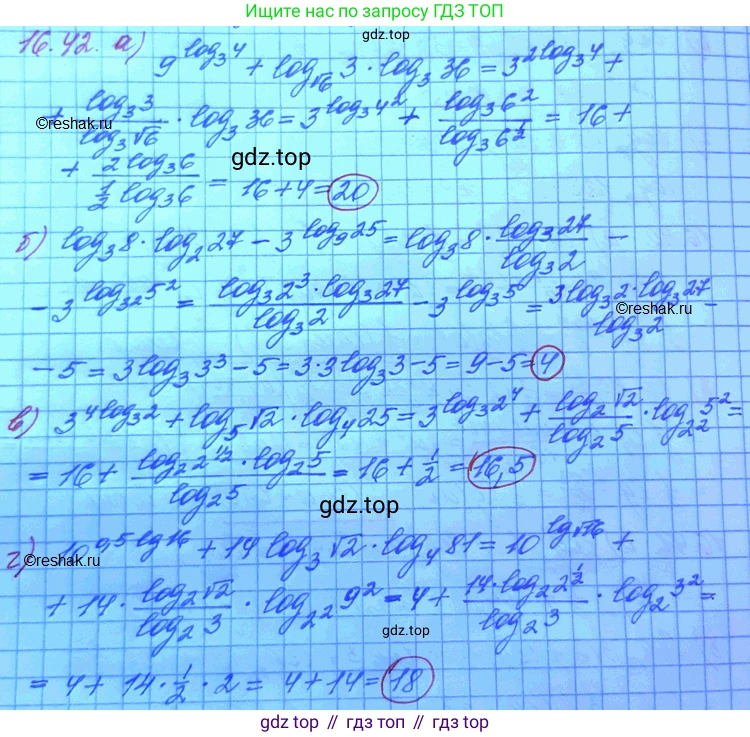 Ищите нас по запросу ГДЗ ТОП
gdz.top
16.42. а) 9^{log_3 4} + log_{√6} 3 · log_3 36 = 3^{2log_3 4} +
+ \frac{log_3 3}{log_3 √6} · log_3 36 = 3^{log_3 4^2} + \frac{log_3 6^2}{log_3 6^{\frac{1}{2}}} = 16 +
©reshak.ru
+ \frac{2 log_3 6}{\frac{1}{2} log_3 6} = 16 + 4 = 20
gdz.top
б) log_3 8 · log_2 27 − 3^{log_9 25} = log_3 8 · \frac{log_3 27}{log_3 2} −
− 3^{log_{3^2} 5^2} = \frac{log_3 2^3 · log_3 27}{log_3 2} − 3^{log_3 5} = \frac{3log_3 2 · log_3 27}{log_3 2} −
©reshak.ru
− 5 = 3 log_3 3^3 − 5 = 3 · 3 log_3 3 − 5 = 9 − 5 = 4
в) 3^{4 log_3 2} + log_5 √2 · log_4 25 = 3^{log_3 2^4} + \frac{log_2 √2}{log_2 5} · log_{2^2} 5^2 =
= 16 + \frac{log_2 2^{1/2} · log_2 5}{log_2 5} = 16 + \frac{1}{2} = 16,5
gdz.top
г) 10^{0,5 lg 16} + 14 log_3 √2 · log_4 81 = 10^{lg √16} +
©reshak.ru
+ 14 · \frac{log_2 √2}{log_2 3} · log_{2^2} 9^2 = 4 + \frac{14 · log_2 2^{\frac{1}{2}}}{log_2 3} · log_2 3^2 =
gdz.top
= 4 + 14 · \frac{1}{2} · 2 = 4 + 14 = 18
gdz top // гдз топ // gdz top